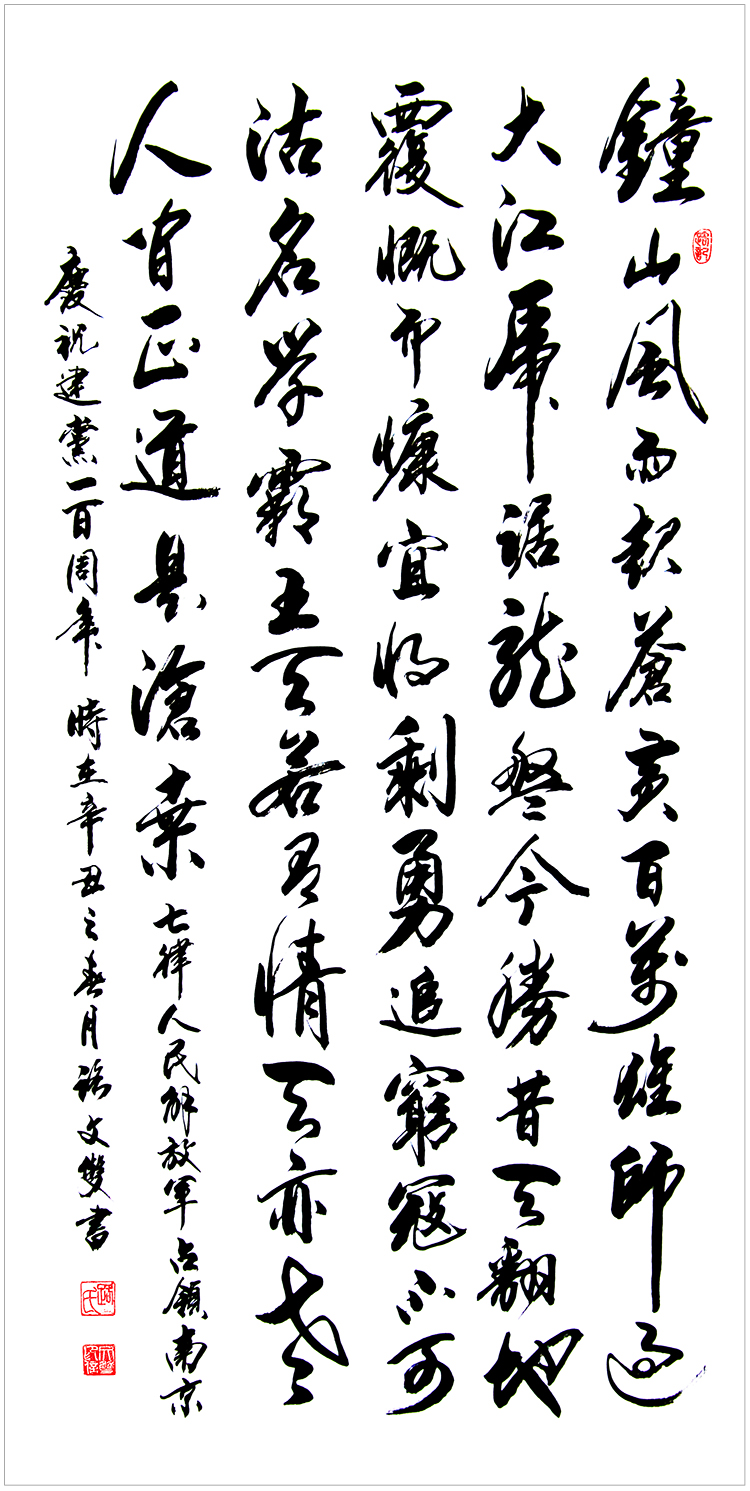 鐘山風雨起蒼黃百萬雄師過
大江虎踞龍盤今勝昔天翻地
覆慨而慷宜將剩勇追窮寇不可
沽名學霸王天若有情天亦老
人間正道是滄桑 七律人民解放軍占領南京
慶祝建黨一百周年 時在辛丑之春月路文雙書